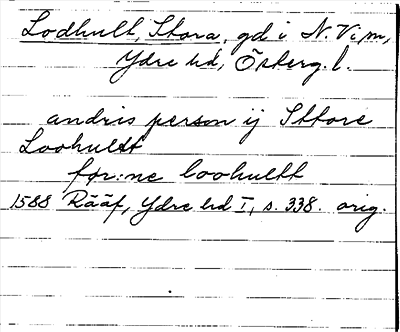 Lodhult, Stora, gd i N. Vi sn,
Ydre hd, Österg. l.
andris person ij Sttore
Loohullt
for:ne loohultt
1588 Rääf, Ydre hd I, s. 338. orig.